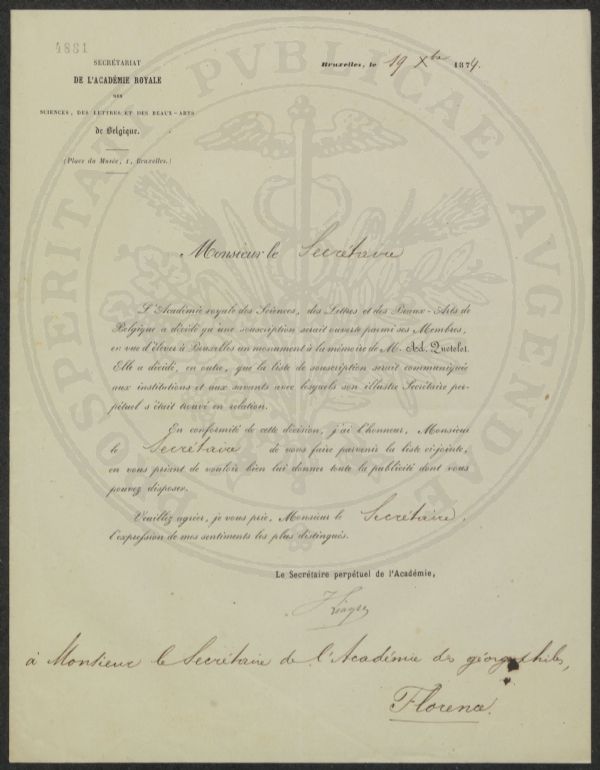 4881
SECRÉTARIAT
DE L'ACADÉMIE ROYALE
DES
SCIENCES, DES LETTRES ET DES BEAUX-ARTS
de Belgique.
(Place du Musée, 1, Bruxelles.)
Bruxelles, le 19 Xbre 1874.
PROSPERITATI PVBLICAE AVGENDAE
Monsieur le Secrétaire
L'Académie royale des Sciences, des Lettres et des Beaux-Arts de
Belgique a décidé qu'une souscription serait ouverte parmi ses Membres,
en vue d'élever à Bruxelles un monument à la mémoire de M. Ad. Quetelet.
Elle a décidé, en outre, que la liste de souscription serait communiquée
aux institutions et aux savants avec lesquels son illustre Secrétaire per-
pétuel s'était trouvé en relation.
En conformité de cette décision, j'ai l'honneur, Monsieur
le Secrétaire de vous faire parvenir la liste ci-jointe,
en vous priant de vouloir bien lui donner toute la publicité dont vous
pouvez disposer.
Veuillez agréer, je vous prie, Monsieur le Secrétaire,
l'expression de mes sentiments les plus distingués.
Le Secrétaire perpétuel de l'Académie,
J Liagre
à Monsieur le Secrétaire de l'Académie des géorgophiles,
Florence.